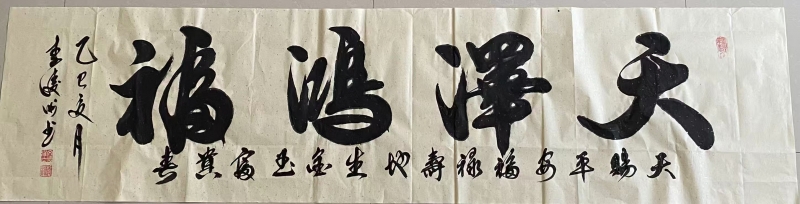 天澤鴻福
天賜平安福禄壽地生金玉富貴春
乙巳夏月
书